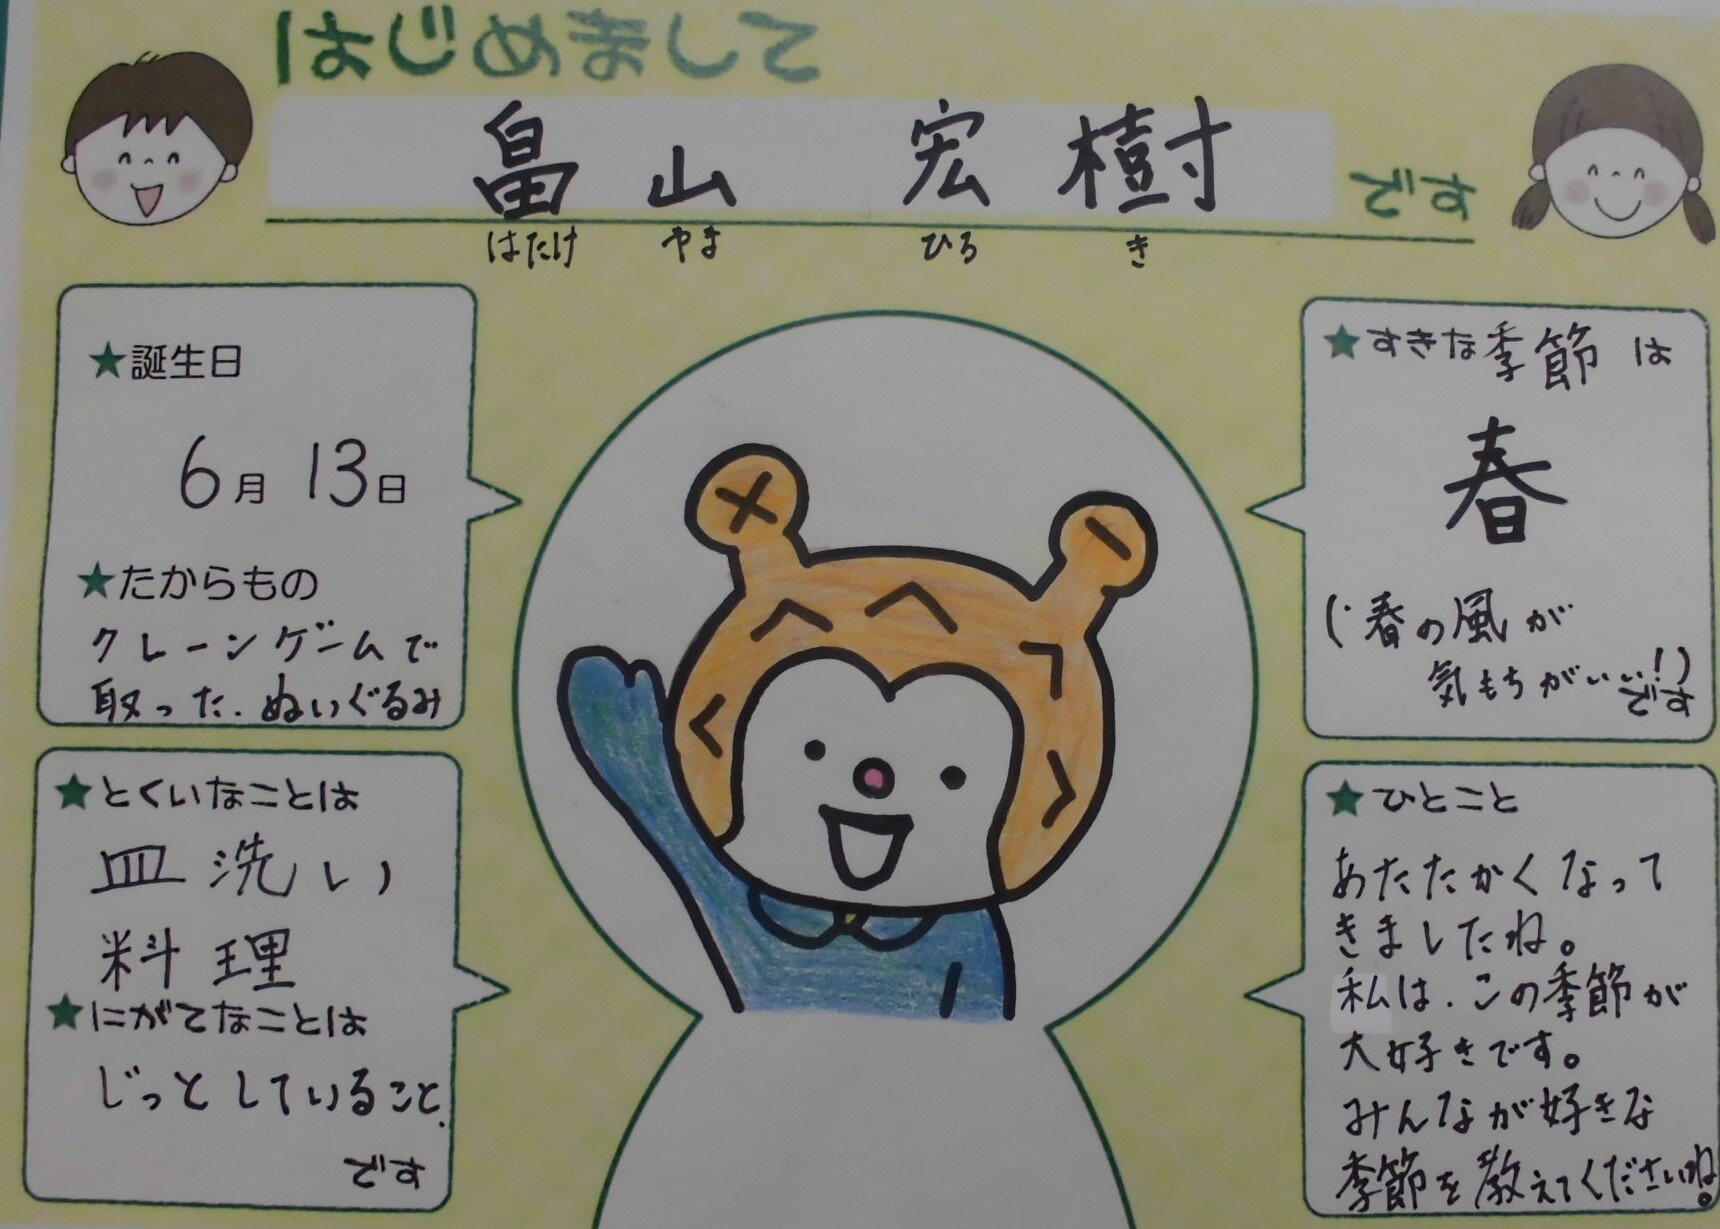 はじめまして
畠山 宏樹 です
はたけ やま ひろ き
★誕生日
6月 13日
★たからもの
クレーンゲームで
取った、ぬいぐるみ
★とくいなことは
皿洗い
料理
★にがてなことは
じっとしていること、
です
★すきな季節は
春
(春の風が
気もちがいい!)
です
★ひとこと
あたたかくなって
きましたね。
私は、この季節が
大好きです。
みんなが好きな
季節を教えてくださいね。